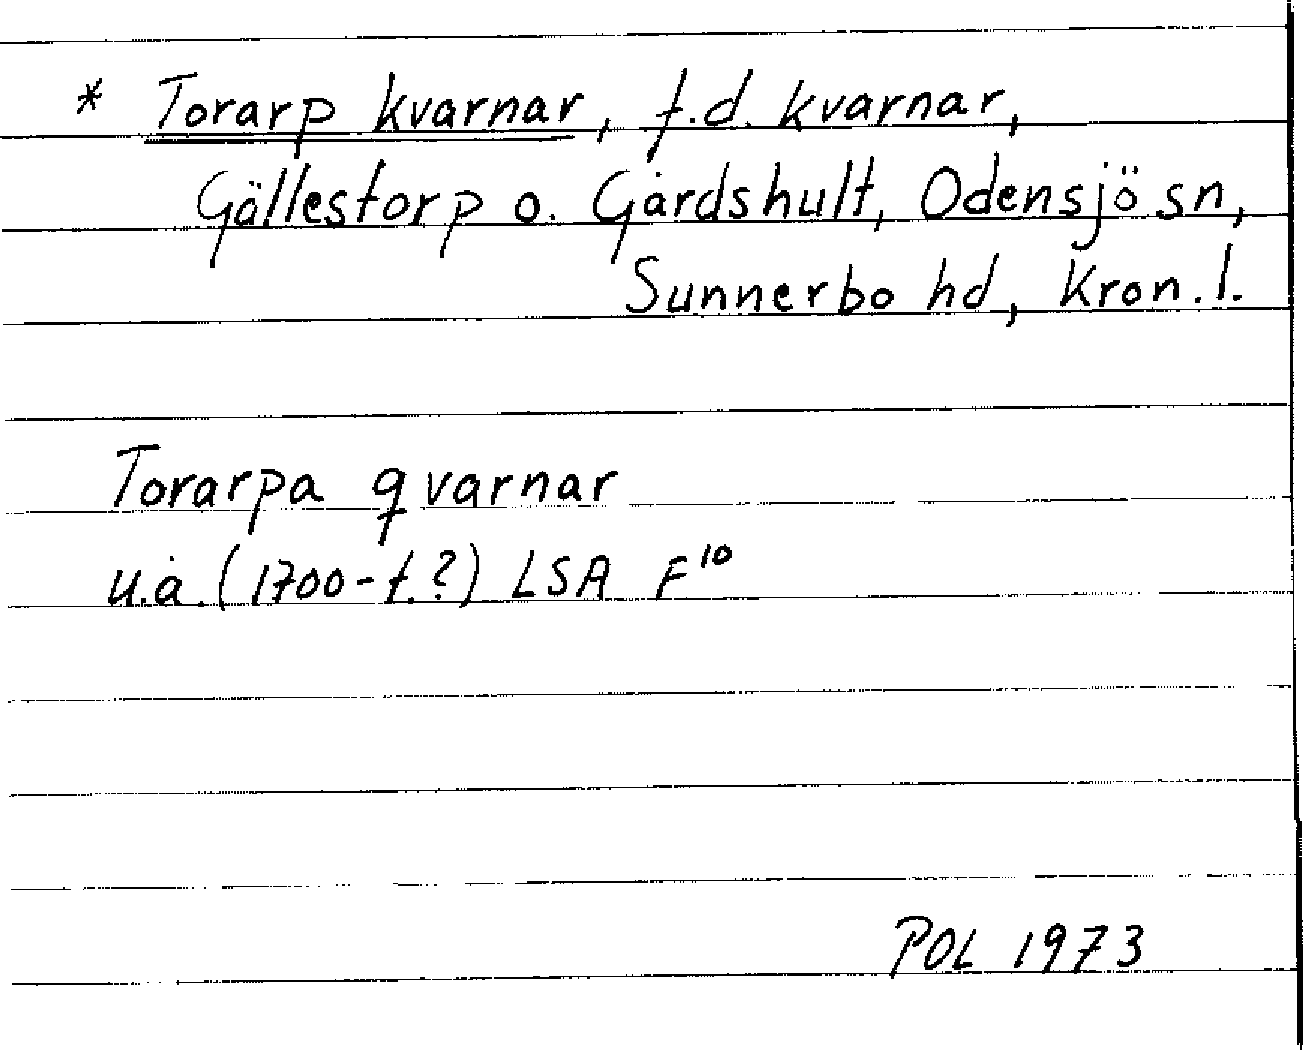 * Torarp kvarnar, f.d. kvarnar,
Gällestorp o. Gårdshult, Odensjö sn,
Sunnerbo hd, Kron.l.
Torarpa qvarnar
u.å. (1700-t.?) LSA F¹⁰
POL 1973